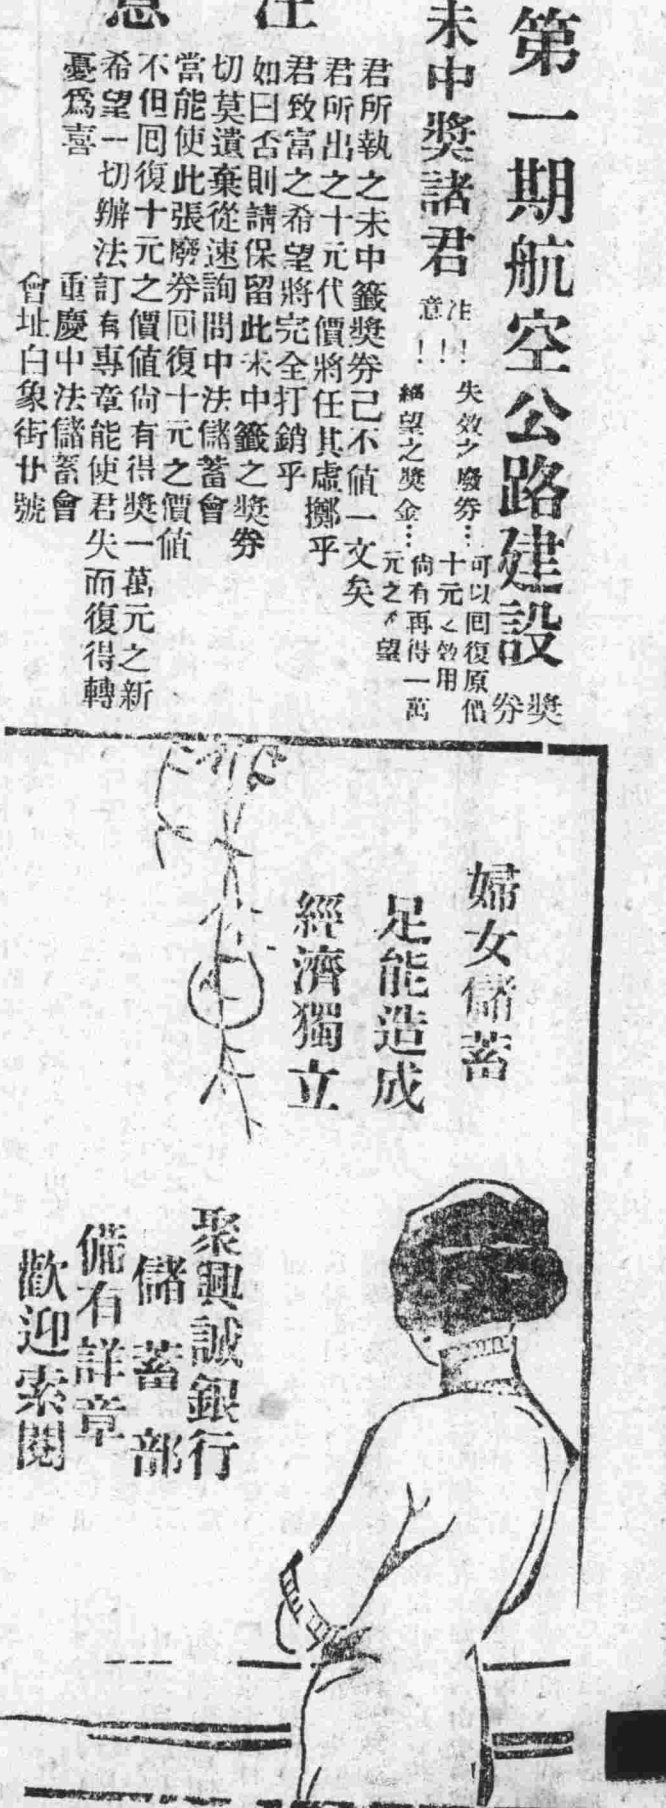 第一期航空公路建設獎券
未中獎諸君
注意
注意!!!
失效之廢券…可以回復原價十元之效用
絕望之獎金…尚有再得一萬元之希望
君所執之未中籤獎券已不値一文矣
君所出之十元代價將任其虛擲乎
君致富之希望將完全打銷乎
如曰否則請保留此未中籤之獎券
切莫遺棄從速詢問中法儲蓄會
當能使此張廢券回復十元之價値
不但回復十元之價値尙有得獎一萬元之新
希望一切辦法訂有專章能使君失而復得轉
憂爲喜
重慶中法儲蓄會
會址白象街廿號
婦女儲蓄
足能造成
經濟獨立
聚興誠銀行
儲蓄部
備有詳章
歡迎索閱